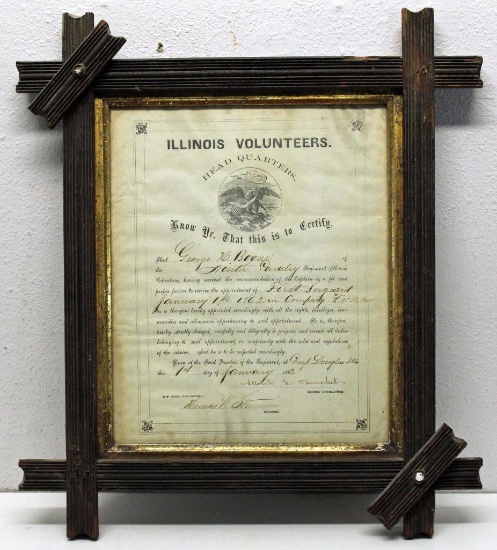 ILLINOIS VOLUNTEERS.
HEAD QUARTERS,
Know Ye, That this is to Certify,
That George H. Boone of
the Ninth Cavalry Regiment Illinois
Volunteers, having received the recommendation of his Captain as a fit and
proper person to receive the appointment of First Sergeant
January 1st 1862 in Company
He is therefore hereby appointed accordingly, with all the rights, privileges, immu-
nities and allowances appertaining to said appointment. He is, therefore,
hereby strictly charged, carefully and diligently to perform and execute all duties
belonging to said appointment, in conformity with the rules and regulations
of the service. And he is to be respected accordingly.
Given at the Head Quarters of the Regiment, at Camp Douglas Ills
this 1st day of January 1862